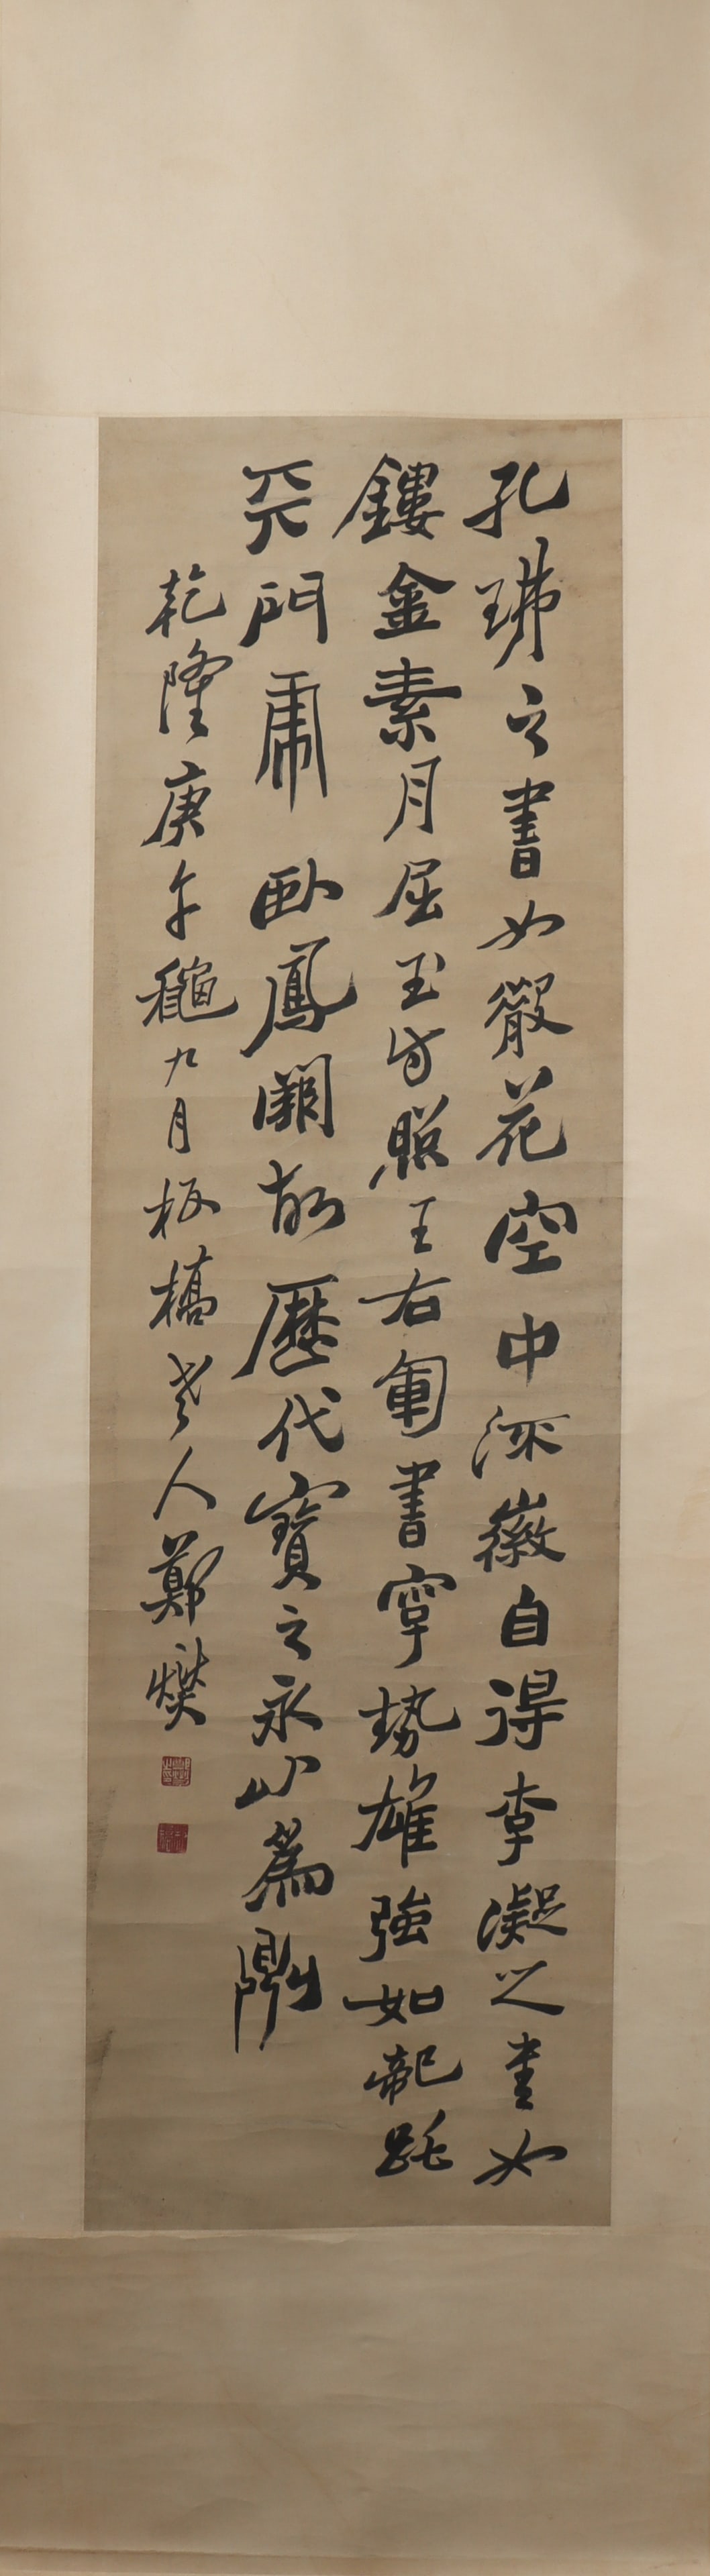 孔琳之書如散花空中流徽自得李凝之書如
鏤金素月屈玉自照王右軍書字勢雄強如龍跳
天門虎臥鳳闕故歷代寶之永以為訓
乾隆庚午秋九月板橋老人鄭燮